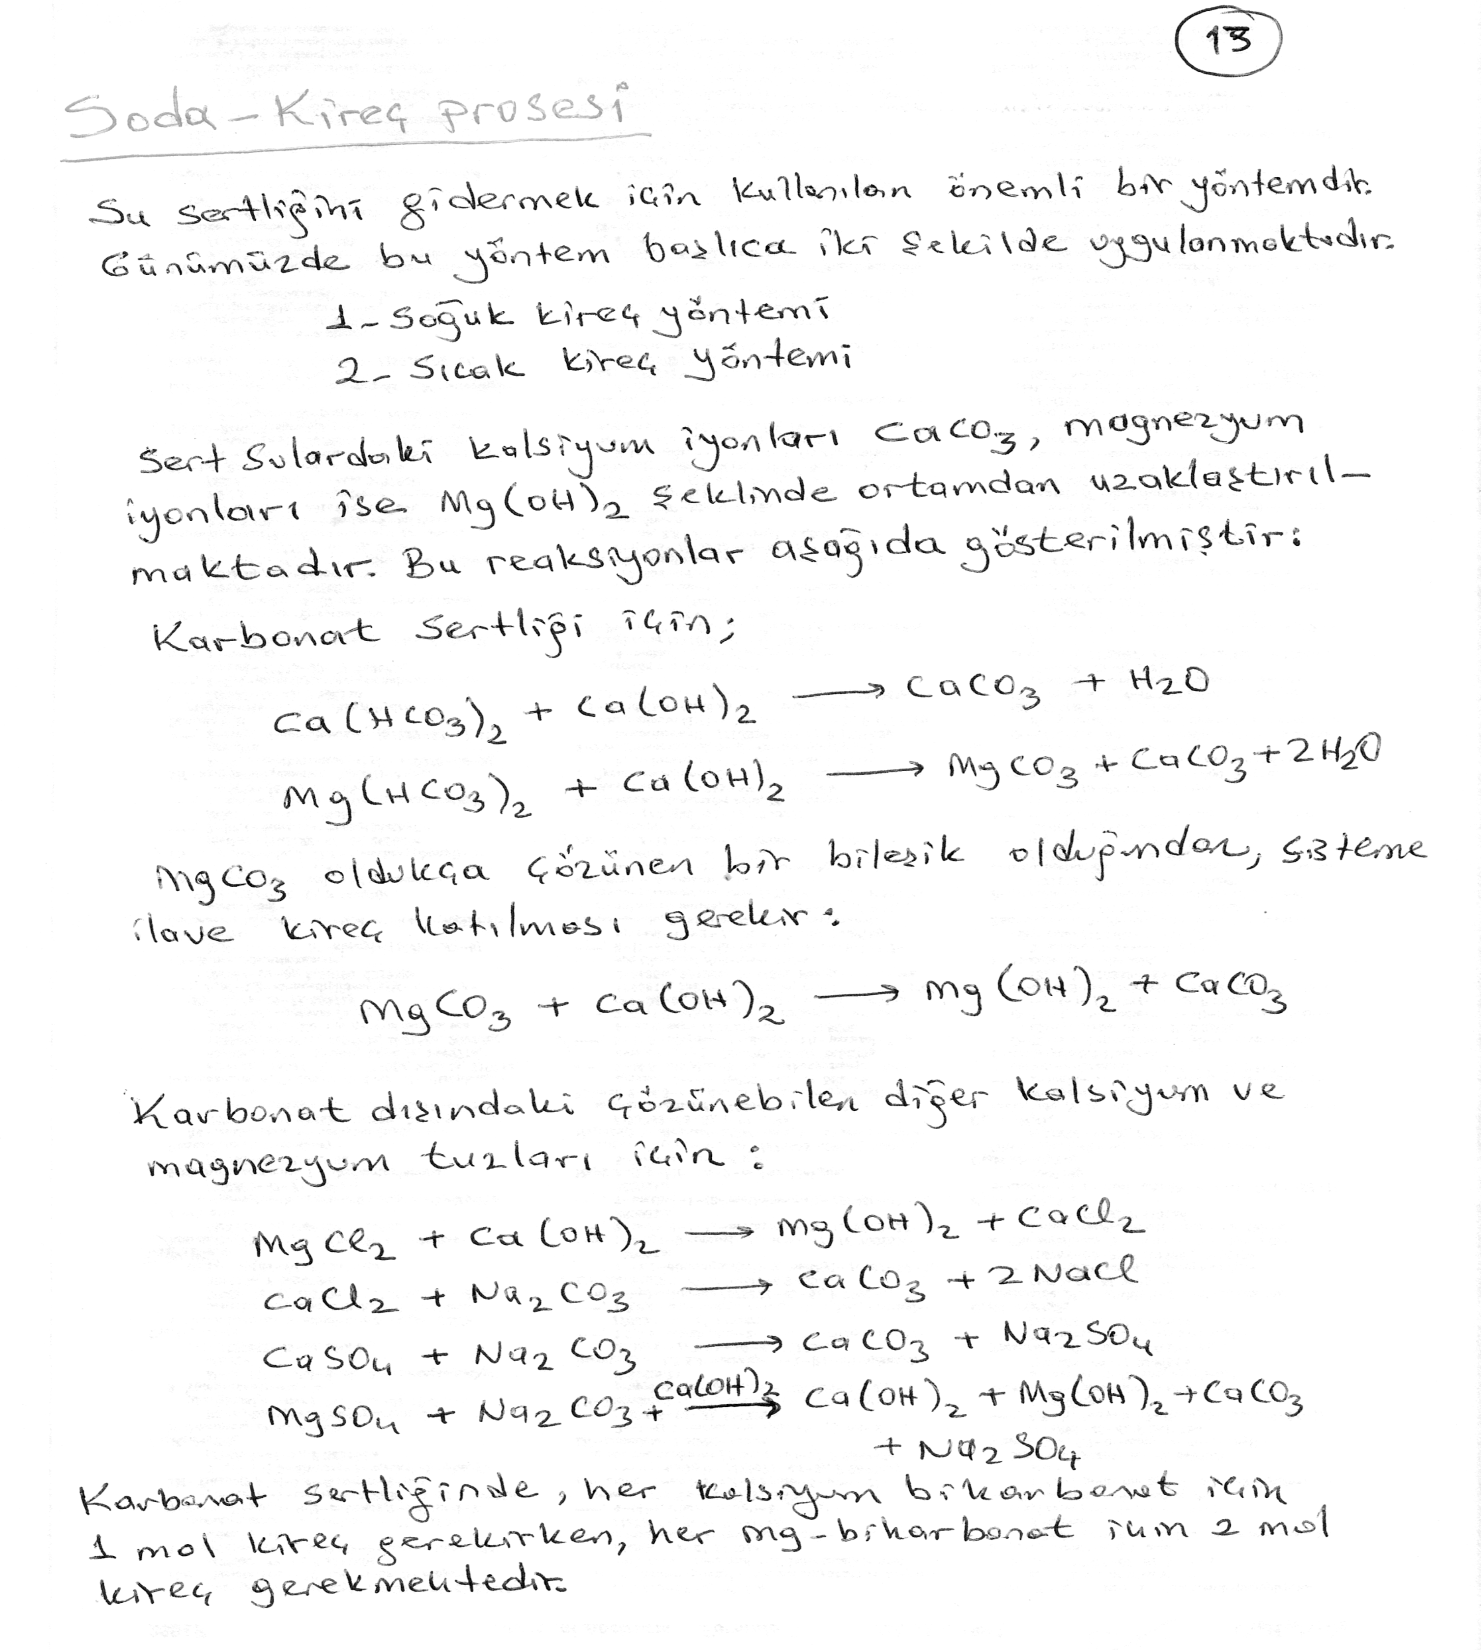 13
Soda - Kireç prosesi
Su sertliğini gidermek için kullanılan önemli bir yöntemdir.
Günümüzde bu yöntem başlıca iki şekilde uygulanmaktadır.
1- Soğuk kireç yöntemi
2- Sıcak kireç yöntemi
Sert sulardaki kalsiyum iyonları CaCO3, magnezyum
iyonları ise Mg(OH)2 şeklinde ortamdan uzaklaştırıl-
maktadır. Bu reaksiyonlar aşağıda gösterilmiştir:
Karbonat sertliği için;
Ca(HCO3)2 + Ca(OH)2 → CaCO3 + H2O
Mg(HCO3)2 + Ca(OH)2 → MgCO3 + CaCO3 + 2H2O
MgCO3 oldukça çözünen bir bileşik olduğundan, sisteme
ilave kireç katılması gerekir:
MgCO3 + Ca(OH)2 → Mg(OH)2 + CaCO3
Karbonat dışındaki çözünebilen diğer kalsiyum ve
magnezyum tuzları için:
MgCl2 + Ca(OH)2 → Mg(OH)2 + CaCl2
CaCl2 + Na2CO3 → CaCO3 + 2NaCl
CaSO4 + Na2CO3 → CaCO3 + Na2SO4
MgSO4 + Na2CO3 + Ca(OH)2 → Ca(OH)2 + Mg(OH)2 + CaCO3
+ Na2SO4
Karbonat sertliğinde, her kalsiyum bikarbonat için
1 mol kireç gerekirken, her mg-bikarbonat için 2 mol
kireç gerekmektedir.